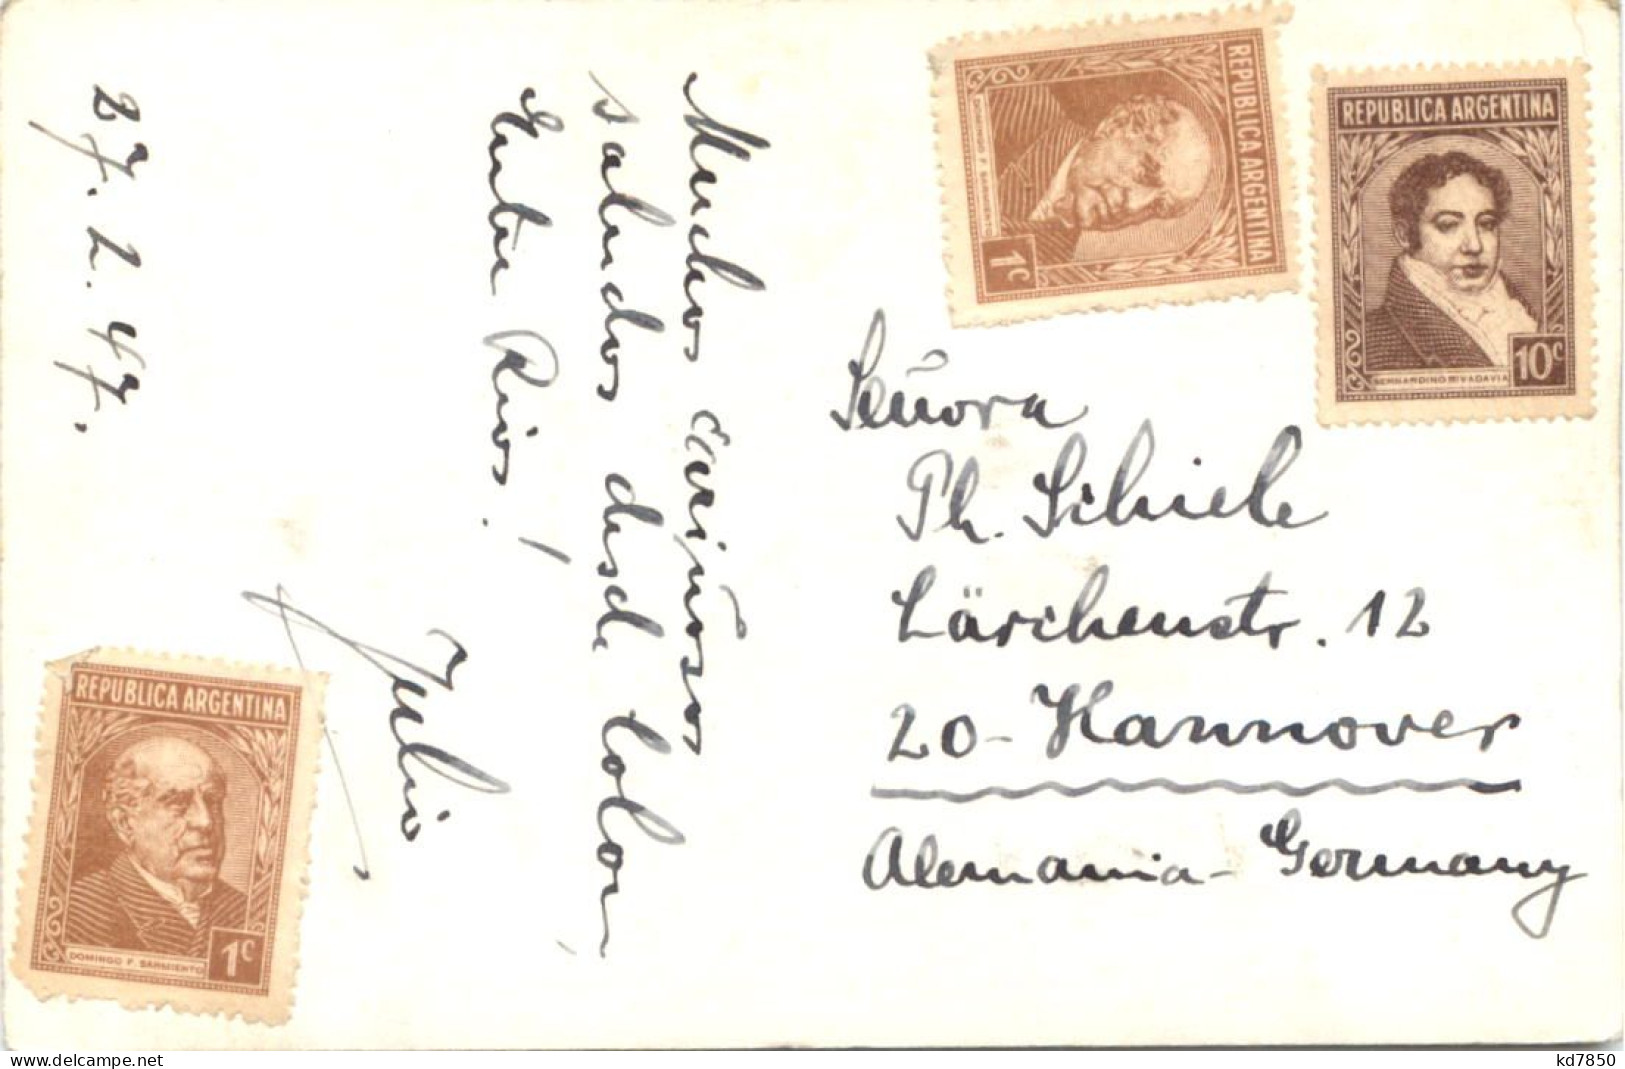 27. 2. 47.
Muchos cariñosos
saludos desde Colón,
Entre Rios!
Julio
REPUBLICA ARGENTINA
DOMINGO F. SARMIENTO
1c
REPUBLICA ARGENTINA
DOMINGO F. SARMIENTO
1c
REPUBLICA ARGENTINA
BERNARDINO RIVADAVIA
10c
Señora
Ph. Schiele
Lärchenstr. 12
20-Hannover
Alemania - Germany
www.delcampe.net
kd7850